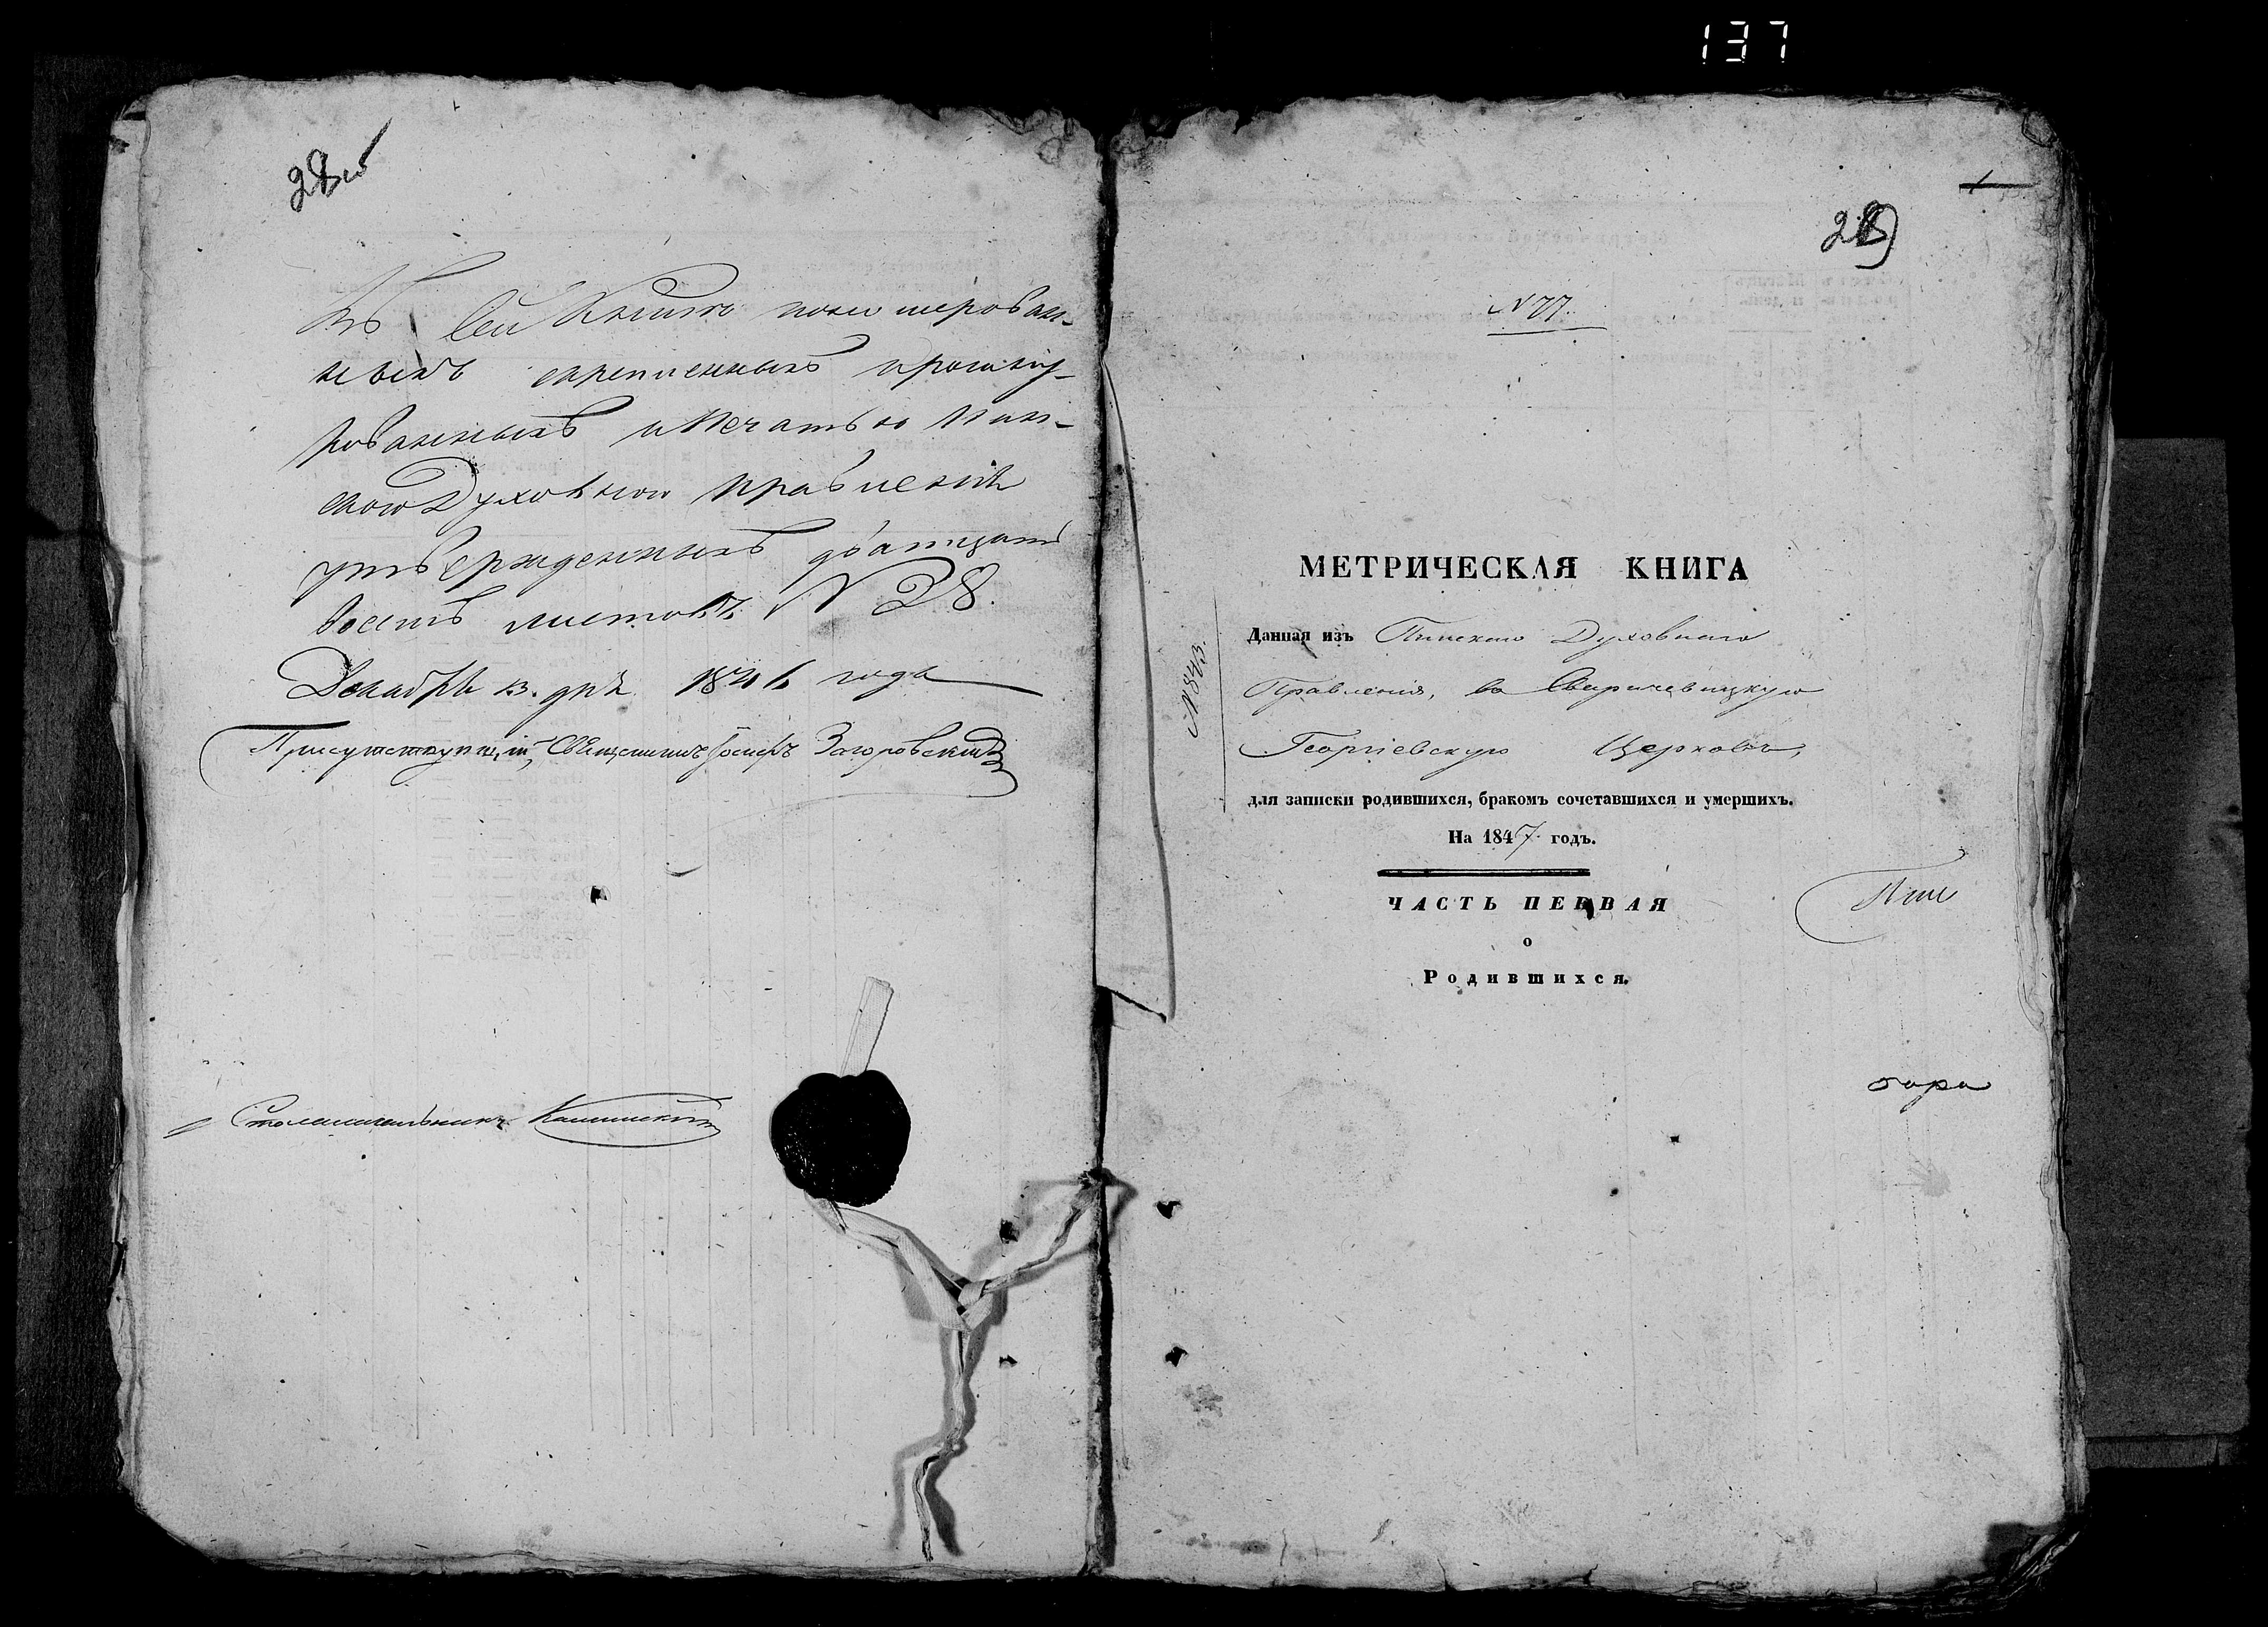 137
28об
Въ сей Книгѣ нонумерован-
ныхъ скрепленныхъ прошну-
рованныхъ и Печатью Пин-
скаго Духовнаго правленія
утвержденныхъ двадцать
восемь листовъ. N 28.
Декабря 13. дня 1846 года
Присутствующій Священникъ Іосифъ Загоровскій
Столоначальникъ Калинскій
29
N 77.
МЕТРИЧЕСКАЯ КНИГА
Данная изъ Пинскаго Духовнаго
Правленія, въ Сваричевицкую
Георгіевскую Церковь,
для записки родившихся, бракомъ сочетавшихся и умершихъ.
На 1847 годъ.
ЧАСТЬ ПЕРВАЯ
о
Родившихся.
N 843.
Пин